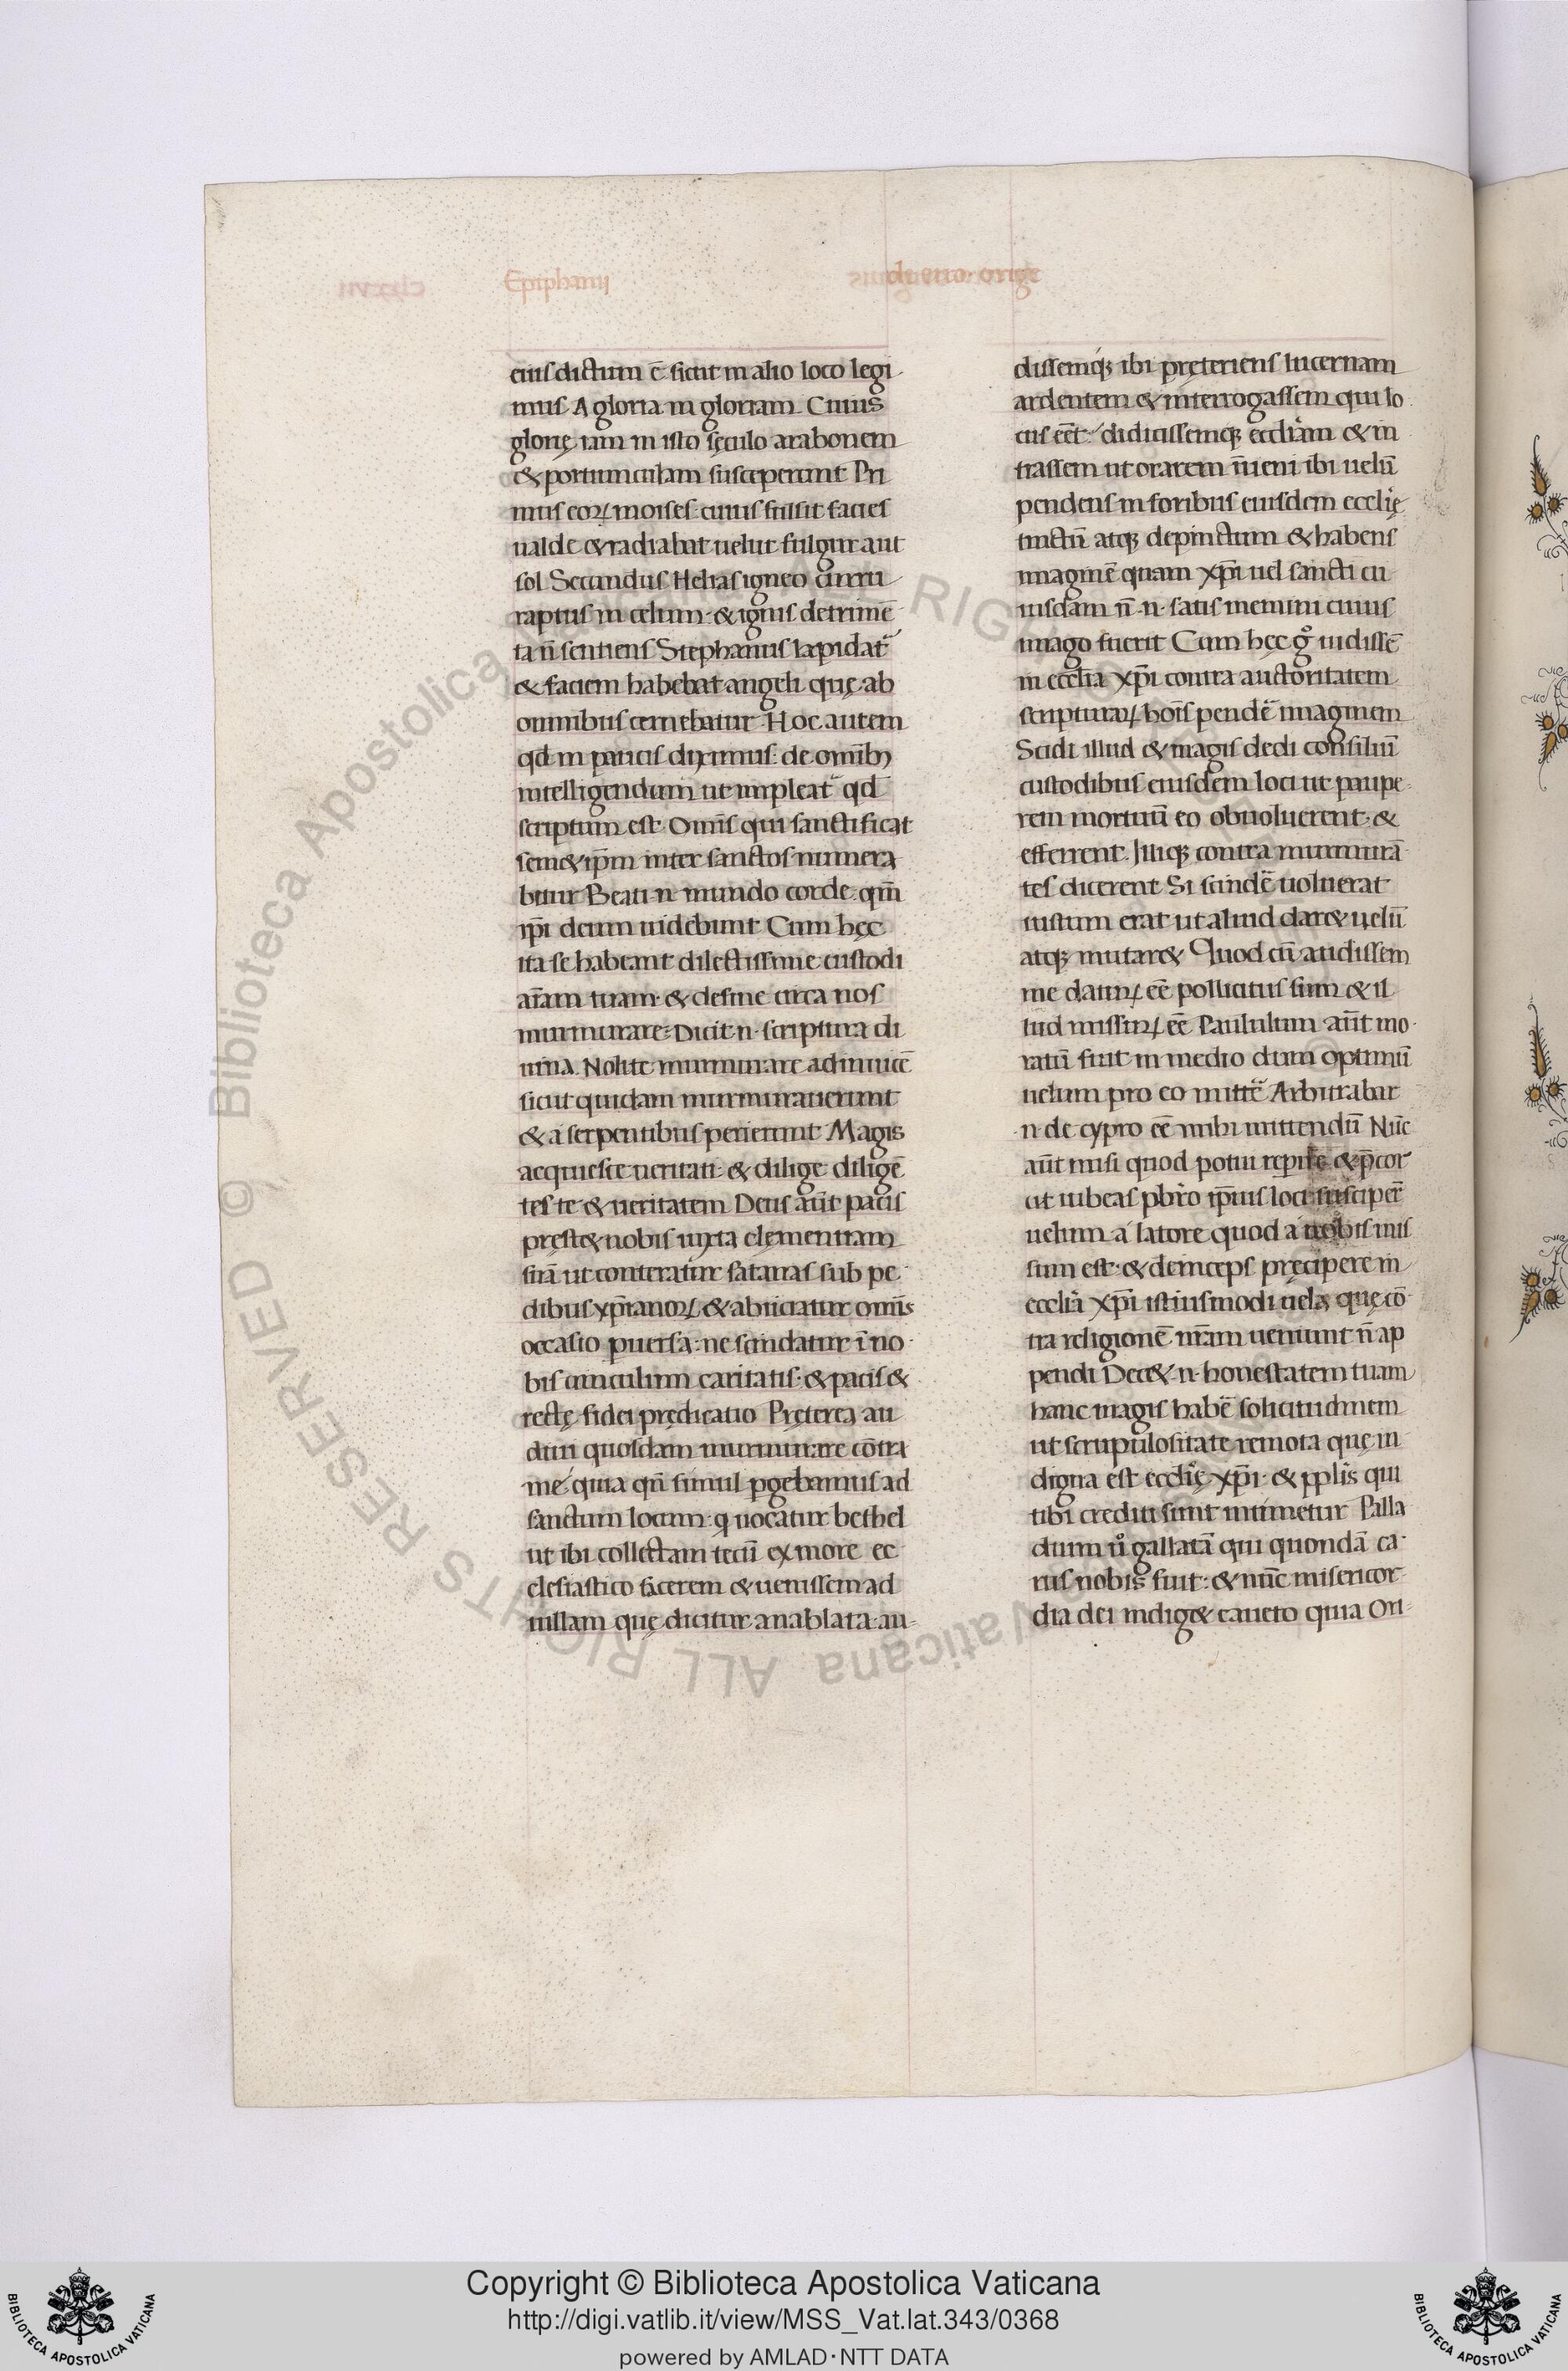 Epiphanii
eius dictum ē sicut in alio loco legi
mus A gloria in gloriam Cuius
glorię iam in isto sęculo arabonem
& portiunculam susceperunt Pri
mus eoꝝ moises cuius fulsit facies
ualde & radiabat uelut fulgur aut
sol Secundus Helias igneo curru
raptus in celum & ignis detrimē
ta n̄ sentiens Stephanus lapidat᷑
& faciem habebat angeli quę ab
omnibus cernebatur Hoc autem
qd̄ in paucis diximus de omib;
intelligendum ut impleat᷑ qd̄
scriptum est Omīs qui sanctificat
sem&ip̄m inter sanctos numera
bitur Beati .n. mundo corde qm̄
ip̄i deum uidebunt Cum hęc
ita se habeant dilectissime custodi
aīam tuam & desine circa nos
murmurare Dicit .n. scriptura di
uina Nolite murmurare adinuicē
sicut quidam murmurauerunt
& a serpentibus perierunt Magis
acquiesce ueritati & dilige diligē
tes te & ueritatem Deus aūt pacis
pręst& nobis iuxta clęmentiam
suā ut conteratur satanas sub pe
dibus xp̄ianoꝝ & abiiciatur omīs
occasio ꝑuersa ne scindatur ī no
bis uinculum caritatis & pacis &
rectę fidei prędicatio Pręterea au
diui quosdam murmurare cōtra
me quia qn̄ simul ꝑgebamus ad
sanctum locum q uocatur bethel
ut ibi collectam tecū ex more ec
clesiastico facerem & uenissem ad
uillam quę dicitur anablata au
dissemq; ibi pręteriens lucernam
ardentem & interrogassem qui lo
cus eēt didicissemq; eccliam & in
trassem ut orarem īueni ibi uelū
pendens in foribus eiusdem ecclię
tinctū atq; depinctum & habens
imaginē quam xp̄i uel sancti cu
iusdam n̄ .n. satis memini cuius
imago fuerit Cum hęc gͦ uidissē
in ecclia xp̄i contra auctoritatem
scripturaꝝ hoīs pendē imaginem
Scidi illud & magis dedi consiliū
custodibus eiusdem loci ut paupe
rem mortuū eo obuoluerent &
efferrent Illiq; contra murmurā
tes dicerent Si scindē uoluerat
iustum erat ut aliud dar& uelū
atq; mutar& Quod cū audissem
me datuꝝ eē pollicitus sum & il
lud missuꝝ eē Paululum aūt mo
ratū fuit in medio dum optimū
uelum pro eo mittē Arbitrabar
.n. de cypro eē mihi mittendū Nūc
aūt misi quod potui reperire & p̄cor
ut iubeas pbr̄o ip̄ius loci suscipeř
uelum a latore quod a nobis mis
sum est & deinceps pręcipere in
ecclia xp̄i istiusmodi uela quę cō
tra religionē nr̄am ueniunt n̄ ap
pendi Dec& .n. honestatem tuam
hanc magis habē solicitudinem
ut scrupulositate remota quę in
digna est ecclię xp̄i & pplīs qui
tibi crediti sunt Palla
dium uͦ gallatā qui quondā ca
rus nobis fuit & nūc misericor
dia dei indig& caueto quia Ori
Copyright © Biblioteca Apostolica Vaticana
http://digi.vatlib.it/view/MSS_Vat.lat.343/0368
powered by AMLAD·NTT DATA